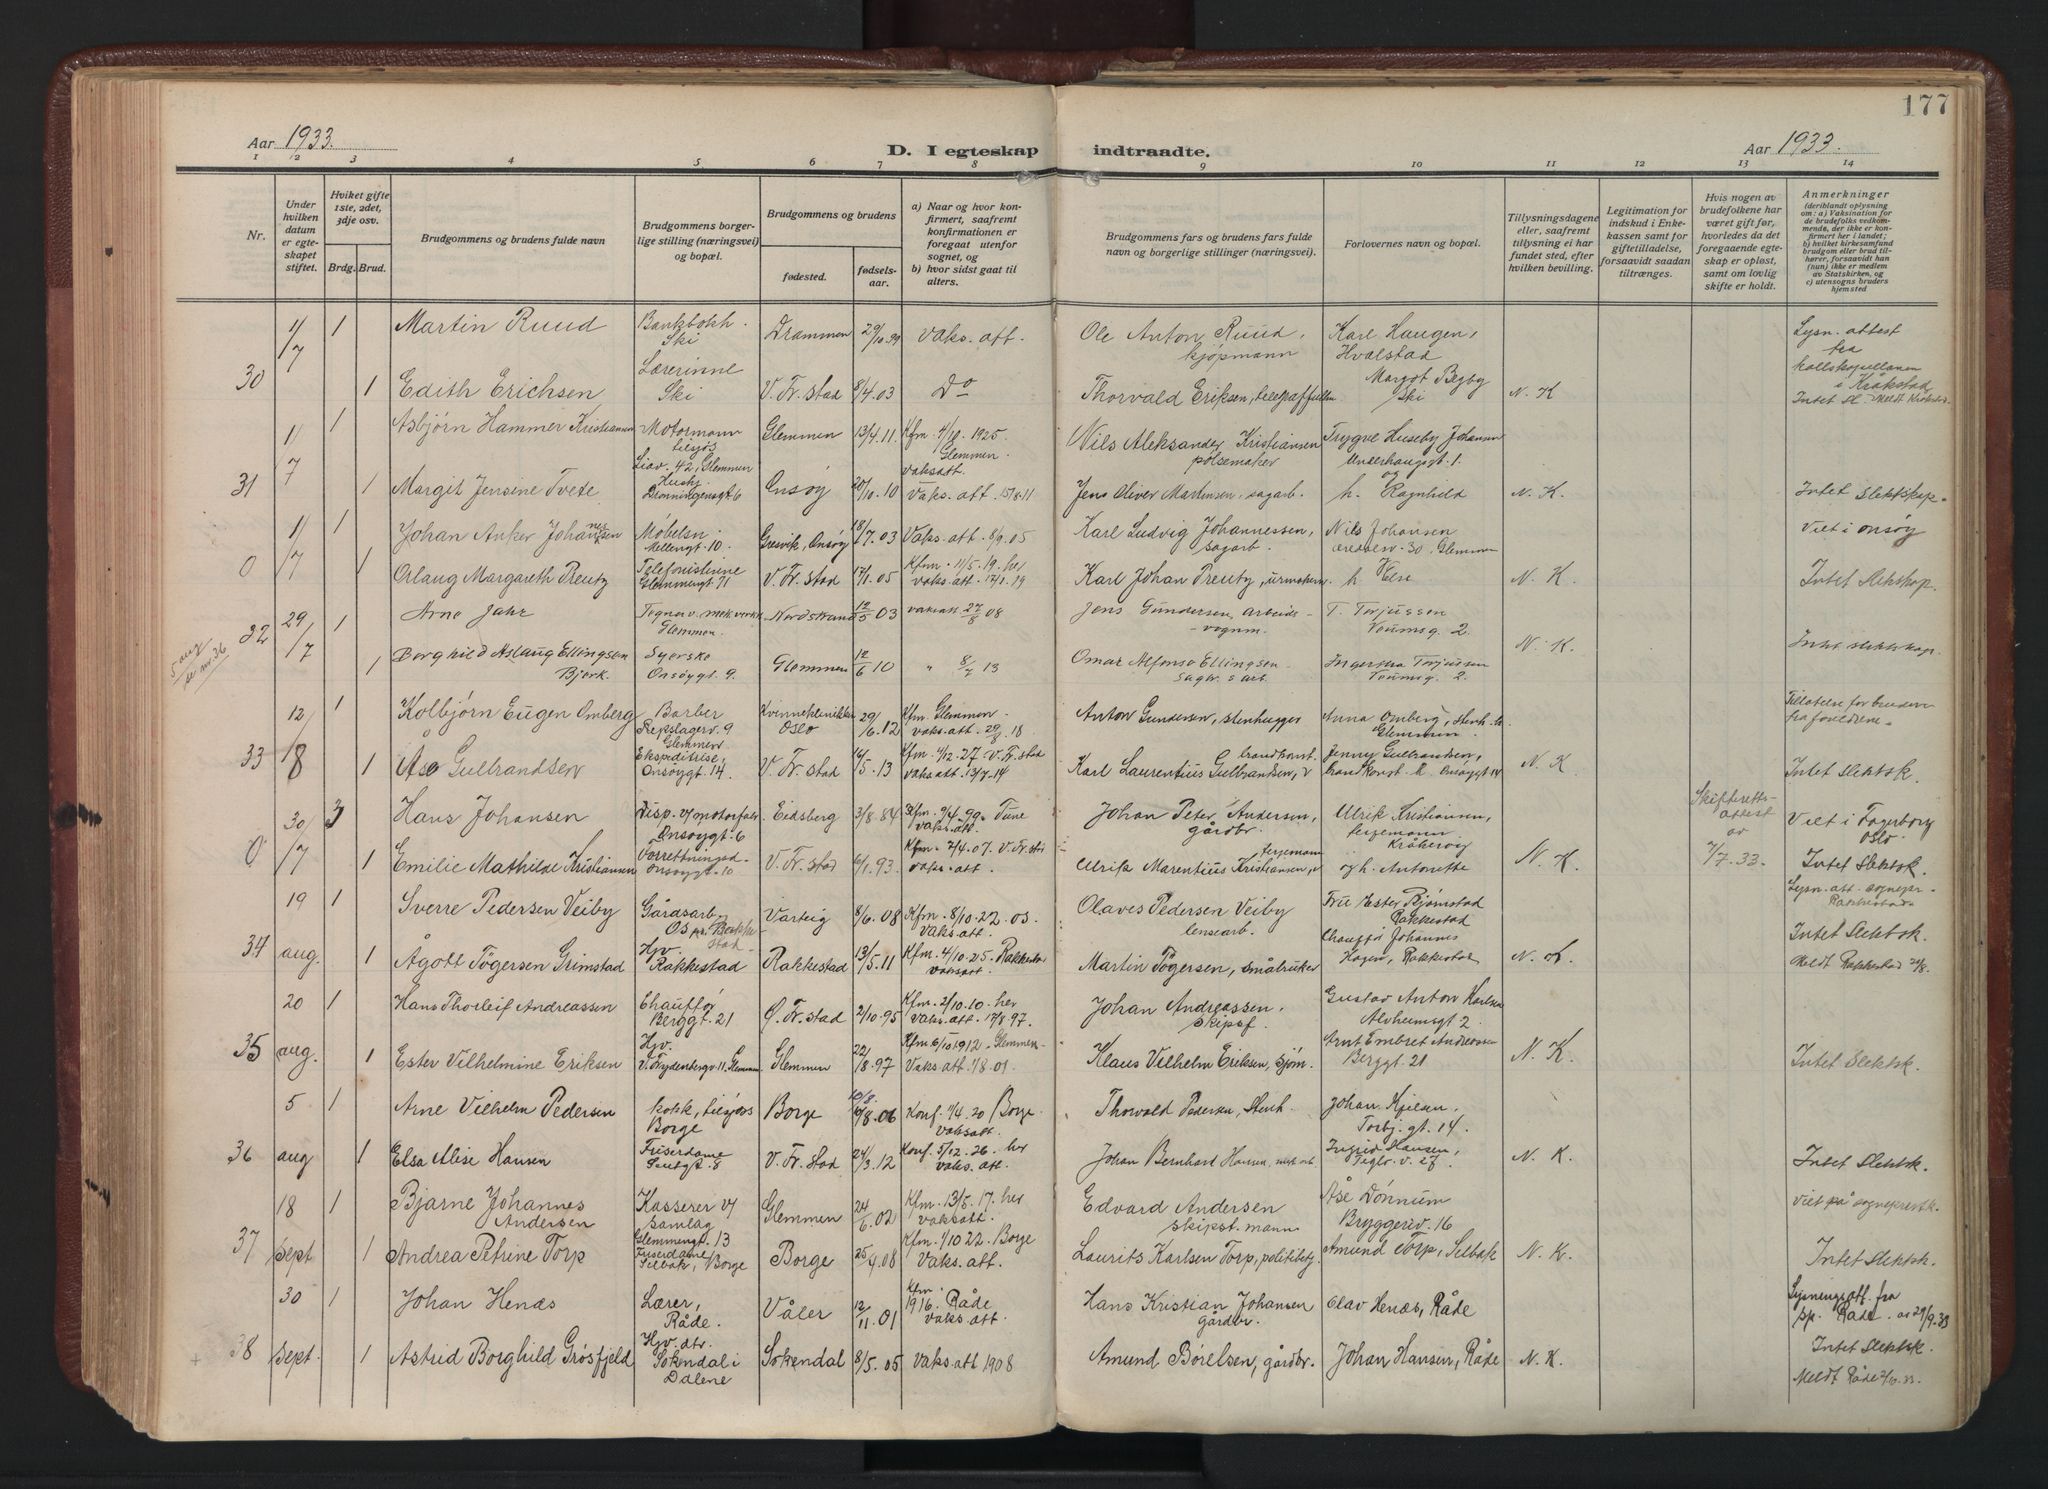 177
Aar 1933.
D. I egteskap indtraadte.
Aar 1933.
1 2 3 4 5 6 7 8 9 10 11 12 13 14
Nr.
Under hvilken datum er egteskapet stiftet.
Hviket gifte 1ste, 2det, 3dje osv.
Brdg. Brud.
Brudgommens og brudens fulde navn
Brudgommens borgerlige stilling (næringsvei) og bopæl.
Brudgommens og brudens
fødested.
fødselsaar.
a) Naar og hvor konfirmert, saafremt konfirmationen er foregaat utenfor sognet, og
b) hvor sidst gaat til alters.
Brudgommens fars og brudens fars fulde navn og borgerlige stillinger (næringsvei).
Forlovernes navn og bopæl.
Tillysningsdagene eller, saafremt tillysning ei har fundet sted, efter hvilken bevilling.
Legitimation for indskud i Enkekassen samt for giftetilladelse, forsaavidt saadan tiltrænges.
Hvis nogen av brudefolkene har været gift før, hvorledes da det foregaaende egteskap er opløst, samt om lovlig skifte er holdt.
Anmerkninger (deriblandt oplysning om: a) Vaksination for de brudefolks vedkommende, der ikke er konfirmert her i landet; b) hvilket kirkesamfund brudgom eller brud tilhører, forsaavidt han (hun) ikke er medlem av Statskirken, og c) utensogns bruders hjemsted
1/7 1 Martin Ruud Bankbokh. Ski Drammen 29/10.99 Vaks. att. Ole Anton Ruud, kjøpmann Karl Haugen, Hvalstad Lysn. attest fra
30 1 Edith Erichsen Lærerinne Ski V. Fr. stad 8/4.03 Do Thorvald Eriksen, Margot Begby Ski N. K i Kråkstad
1/7 1 Asbjørn Hammer Kristiansen Motormann tilsjøs Liav. 42, Glemmen Glemmen 13/4.11 Kfm. 4/10. 1925. Glemmen. vaksatt. Nils Aleksander Kristiansen pølsemaker Trygve Huseby Johansen Underhaugsgt. 1. og
31 1 Margit Jensine Tvete Hushj. Dronningensgt. 6 Onsøy 20/10.10 Vaks. att. 15/8.11 Jens Oliver Martinsen, sagarb. h. Ragnhild N. K. Intet slektskap.
1/7 1 Johan Anker Johannessen Møbelsn. Mellemgt. 10. Gresvik, Onsøy 18/7.03 Vaks. att. 8/9.05 Karl Ludvig Johannessen, sagarb. Nils Johansen 30, Glemmen Viet i Onsøy
0 1 Orlaug Margareth Preutz Telefonistinne Glemmengt. 71 V. Fr. stad 17/1.05 Kfm. 11/5.19. her vaks. att. 17/1.19 Karl Johan Preutz, urmaker. h Else N. K. Intet slekskap.
29/7 1 Arne Jahr Tegner v. mek. verkst. Glemmen. Nordstrand 12/5 03 vaksatt 27/8 08 Jens Gundersen, arbeids-vognm. T. Torjussen Toumsg. 2.
32 5 aug se nr. 36 1 Borghild Aslaug Ellingsen Bjørk. Syerske Onsøygt. 9. Glemmen 12/6 10 " 8/7 13 Omar Alfonso Ellingsen sagbr. s arb. Torjussen Toumsg. 2. N. K. Intet slektskap.
12/8 1 Kolbjørn Eugen Omberg Barber Repslagerv. 9 Glemmen Kvinneklinikken Oslo 29/6.12 Kfm. Glemmen. vaks. att. 29/8 18 Anton Gundersen, stenhugger Anna Omberg, Glemmen Tillatelse for bruden fra foreldrene.
33 1 Åse Gulbrandsen Ekspeditrise, Onsøygt. 14. V. Fr. stad 16/5.13 Kfm. 4/12. 27 V. Fr. stad vaks. att. 13/7.14 Karl Laurentius Gulbrandsen, brandkonst. Jenny Gulbrandsen, Onsøygt 14 N. K Intet slektsk.
30/7 3 Hans Johansen Disp. v/ motorfabr. Onsøygt. 6 Eidsberg 3/8.84 Kfm. 9/4.99. Tune vaks. att. Johan Peter Andersen, gårdbr. Ulrik Kristiansen, ferjemann Kråkerøy Skifterettsattest av 7/7.33. Viet i Fagerborg Oslo.
0 1 Emilie Mathilde Kristiansen Forretningsd. Onsøygt. 10 V. Fr. stad 6/1.93. Kfm. 7/4.07. V. Fr. stad vaks. att. Ulrik Marentius Kristiansen, ferjemann og h. Antonette N. K. Intet slektsk.
19 aug. 1 Sverre Pedersen Veiby Gårdsarb. Os pr. Rakkestad Varteig 8/6.08 Kfm. 8/10.22. Vaks. att. Olaves Pedersen Veiby lensearb. Fru Ester Bjørnstad Rakkestad Lysn. att. sognepr. Rakkestad
34 1 Ågott Tøgersen Grimstad Hjv. Rakkestad Rakkestad 13/5.11 Kfm. 4/10.25. Rakkestad Vaksatt. Martin Tøgersen, småbruker Chauffør Johannes Hagen, Rakkestad N. K. Intet slektsk. Meldt Rakkestad
20 aug. 1 Hans Thorleif Andreassen Chauffør Berggt. 21 Ø. Fr. stad 2/10.95 Kfm. 2/10.10. her Vaks. att. 17/8.97. Johan Andreassen, skipsf. Gustav Anton Karlsen Alvheimsgt 2.
35 1 Ester Vilhelmine Eriksen Hjv. V. Frydenbergv. 11. Glemmen Glemmen 22/8.97 Kfm. 6/10 1912. Glemmen. Vaks. att. 1/8.01. Klaus Vilhelm Eriksen, sjøm. Arnt Embret Andreassen Berggt. 21 N. K. Intet slektsk.
5 aug 1 Arne Vilhelm Pedersen kokk, tilsjøs Borge Borge 10/8. 06 Konf. 7/4. 20 Borge. vaksatt. Thorvald Pedersen, Stenh. Johan Torbj. gt. 14.
36 1 Elsa Alise Hansen Friserdame gt. 8 V. Fr. Stad 24/3.12 Konf. 5/12. 26. her vaks. att. Johan Bernhard Hansen, Ingrid Hansen, Teglv. v. 27. N. K. Intet slektsk.
18 sept 1 Bjarne Johannes Andersen Kasserer v/ samlag Glemmengt. 13 Glemmen 24/6.02 Kfm. 13/5. 17. her vaksatt. Edvard Andersen skipst. mann Åse Dønnum Bryggeriv. 16 Viet på sogneprestk.
37 1 Andrea Petrine Torp Friserdame Selbak, Borge Borge 25/4.08 Kfm. 1/10 22. Borge Vaks. att. Laurits Karlsen Torp, politibetj. Amund Torp, Selbak N. K. Intet slektsk.
30 sept. 1 Johan Henæs Lærer, Råde. Våler 12/11.01 Kfm. 1916. Råde Vaks. att. Hans Kristian Johansen gårdbr. Olav Henæs, Råde Lysningsatt. fra sp. Råde. av 29/9.33
38 1 Astrid Borghild Grøsfjeld Hjv. dtr. Sokndal i Dalene Sokendal 8/5.05 Vaks. att 1908 Amund Børelsen, gårdbr. Johan Hansen, Råde N. K. Intet slektsk. Meldt Råde 2/10.33.